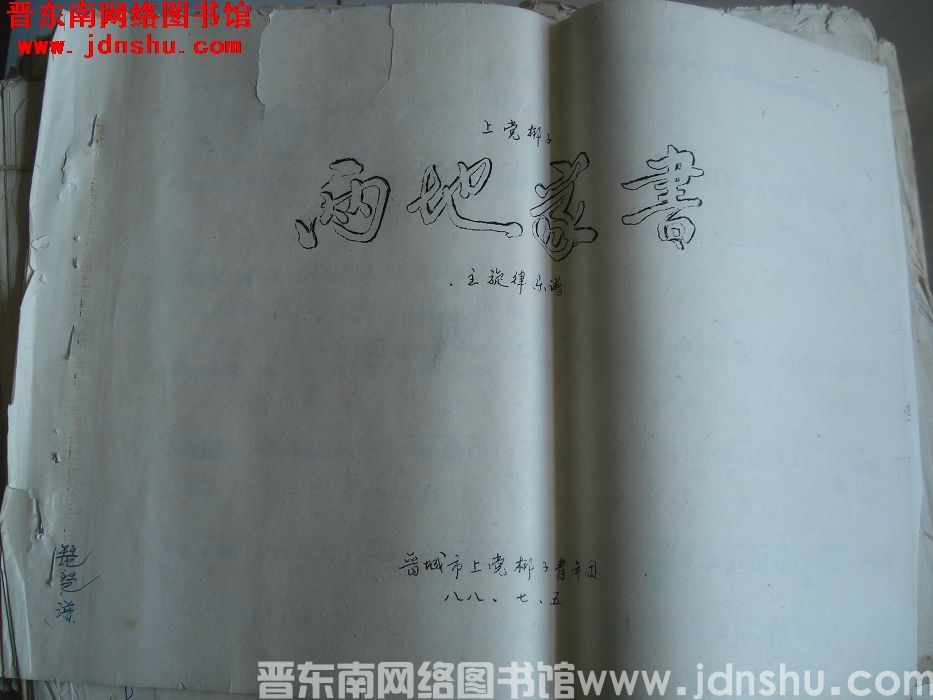 晋东南网络图书馆
www.jdnshu.com
上党梆子
兩地家書
主旋律乐谱
琵琶谱
晋城市上党梆子青年团
八八.七.五
晋东南网络图书馆 www.jdnshu.com